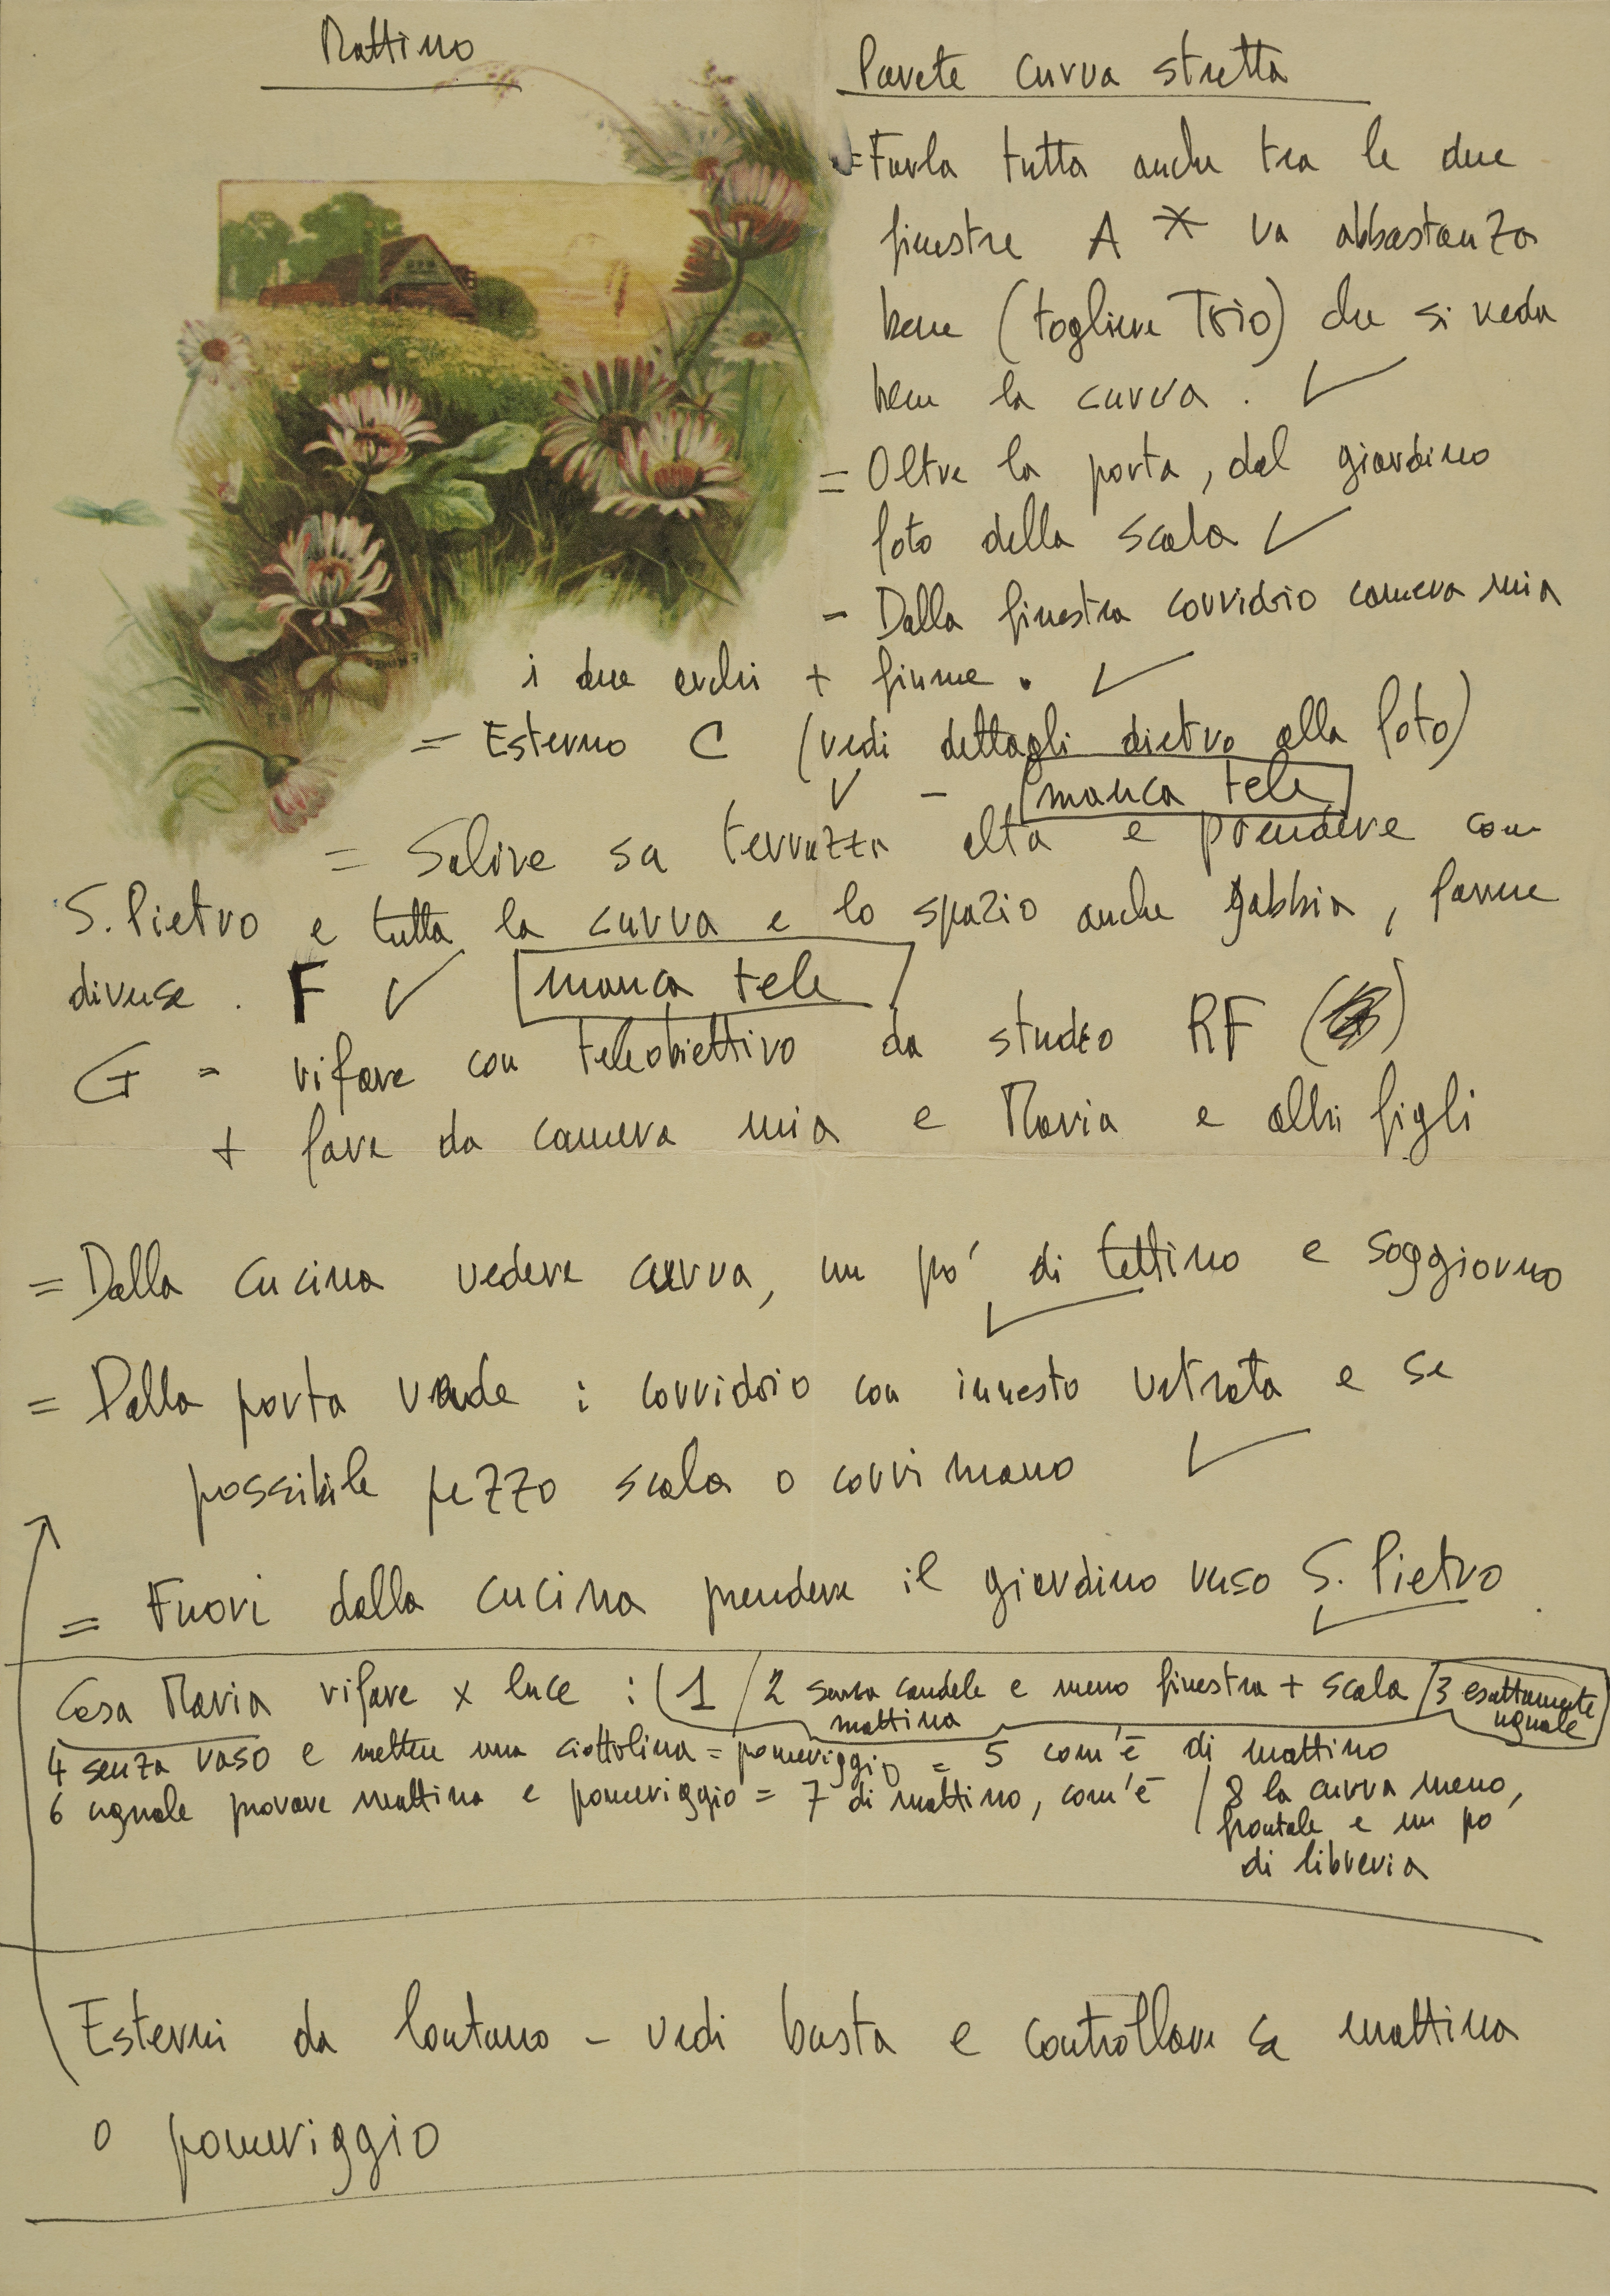 Mattino
Parete curva stretta
= Farla tutta anche tra le due
finestre A * va abbastanza
bene (togliere Trio) che si veda
bene la curva. ✓
= Oltre la porta, dal giardino
foto della scala ✓
- Dalla finestra corridoio camera mia
i due archi + fiume. ✓
= Esterno C (vedi dettagli dietro alla foto)
✓ - manca tele
= Salire su terrazza alta e prendere con
S. Pietro e tutta la curva e lo spazio anche gabbia, farne
diverse. F ✓ manca tele
G = rifare con teleobiettivo da studio RF
+ fare da camera mia e Maria e altri figli
= Dalla cucina vedere curva, un po' di tettino e soggiorno ✓
= Dalla porta verde : corridoio con innesto vetrata e se
possibile pezzo scala o corrimano ✓
= Fuori dalla cucina prendere il giardino verso S. Pietro ✓
Casa Maria rifare x luce : (1 / 2 senza candele e meno finestra + scala / 3 esattamente
mattina uguale
4 senza vaso e mettere una ciottolina = pomeriggio = 5 com'è di mattino
6 uguale provare mattina e pomeriggio = 7 di mattino, com'è / 8 la curva meno,
frontale e un po
di libreria
Esterni da lontano - vedi busta e controllare se mattina
o pomeriggio